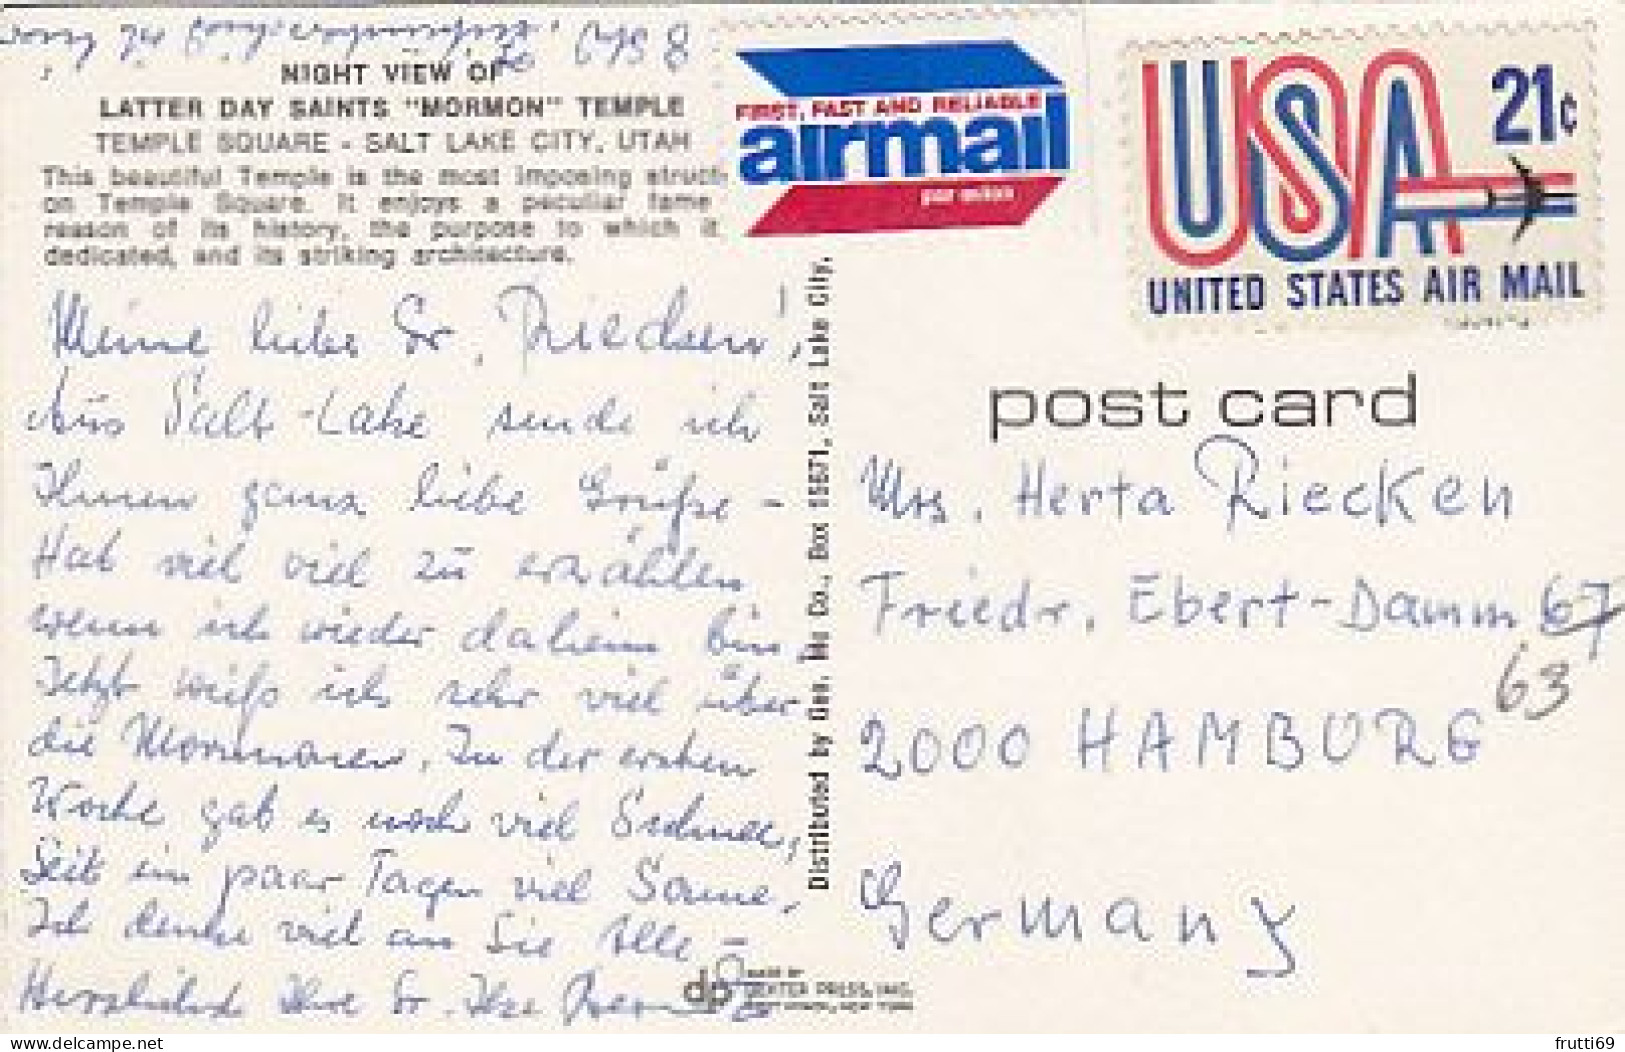 NIGHT VIEW OF
LATTER DAY SAINTS "MORMON" TEMPLE
TEMPLE SQUARE - SALT LAKE CITY, UTAH
This beautiful Temple is the most imposing struct
on Temple Square. It enjoys a peculiar fame
reason of its history, the purpose to which it
dedicated, and its striking architecture.
Meine liebe Sr.
Aus Salt-Lake sende ich
Ihnen ganz liebe Grüße -
Hab viel viel zu erzählen
wenn ich wieder daheim bin.
Jetzt weiß ich sehr viel über
die Mormonen. In der ersten
Woche gab es noch viel Schnee,
Seit ein paar Tagen viel Sonne.
Ich denke viel an Sie Alle -
Herzlichst Ihre Sr. Ilse
Distributed by Geo. Mc Co., Box 15671, Salt Lake City,
dp
MADE BY
DEXTER PRESS, INC.
WEST NYACK, NEW YORK
FIRST, FAST AND RELIABLE
airmail
par avion
USA
21c
UNITED STATES AIR MAIL
post card
Mrs. Herta Riecken
Friedr. Ebert-Damm 67
63
2000 HAMBURG
Germany
frutti69